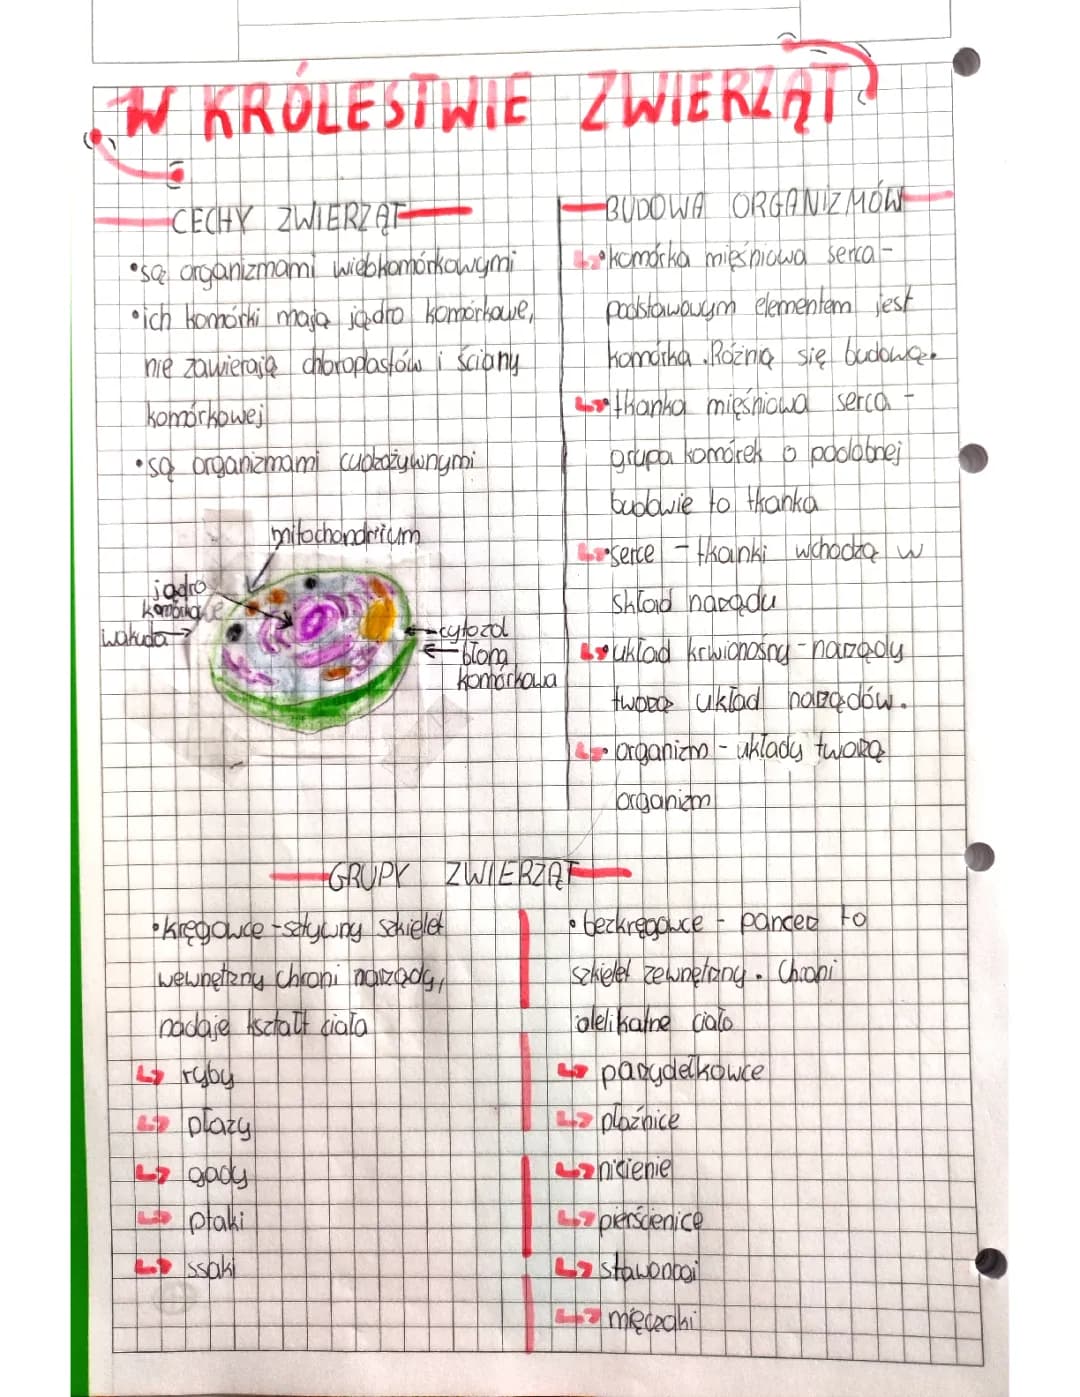 W KRÓLESTWIE ZWIERZĄT
CECHY ZWIERZĄT
•są organizmami wielokomórkowymi
•ich komórki mają jądro komórkowe,
nie zawierają chloroplastów i ściany
komórkowej
•są organizmami cudzożywnymi
mitochondrium
jądro
komórkowe
wakuola
cytozol
błona
komórkowa
BUDOWA ORGANIZMÓW
↳•komórka mięśniowa serca -
podstawowym elementem jest
komórka. Różnią się budową.
↳•tkanka mięśniowa serca -
grupa komórek o podobnej
budowie to tkanka
↳•serce - tkanki wchodzą w
skład narządu
↳•układ krwionośny - narządy
tworzą układ narządów.
↳•organizm - układy tworzą
organizm
GRUPY ZWIERZĄT
•kręgowce - sztywny szkielet
wewnętrzny chroni narządy,
nadaje kształt ciała
↳ ryby
↳ płazy
↳ gady
↳ ptaki
↳ ssaki
•bezkręgowce - pancerz to
szkielet zewnętrzny. Chroni
delikatne ciało
↳ parzydełkowce
↳ płazińce
↳ nicienie
↳ pierścienice
↳ stawonogi
↳ mięczaki